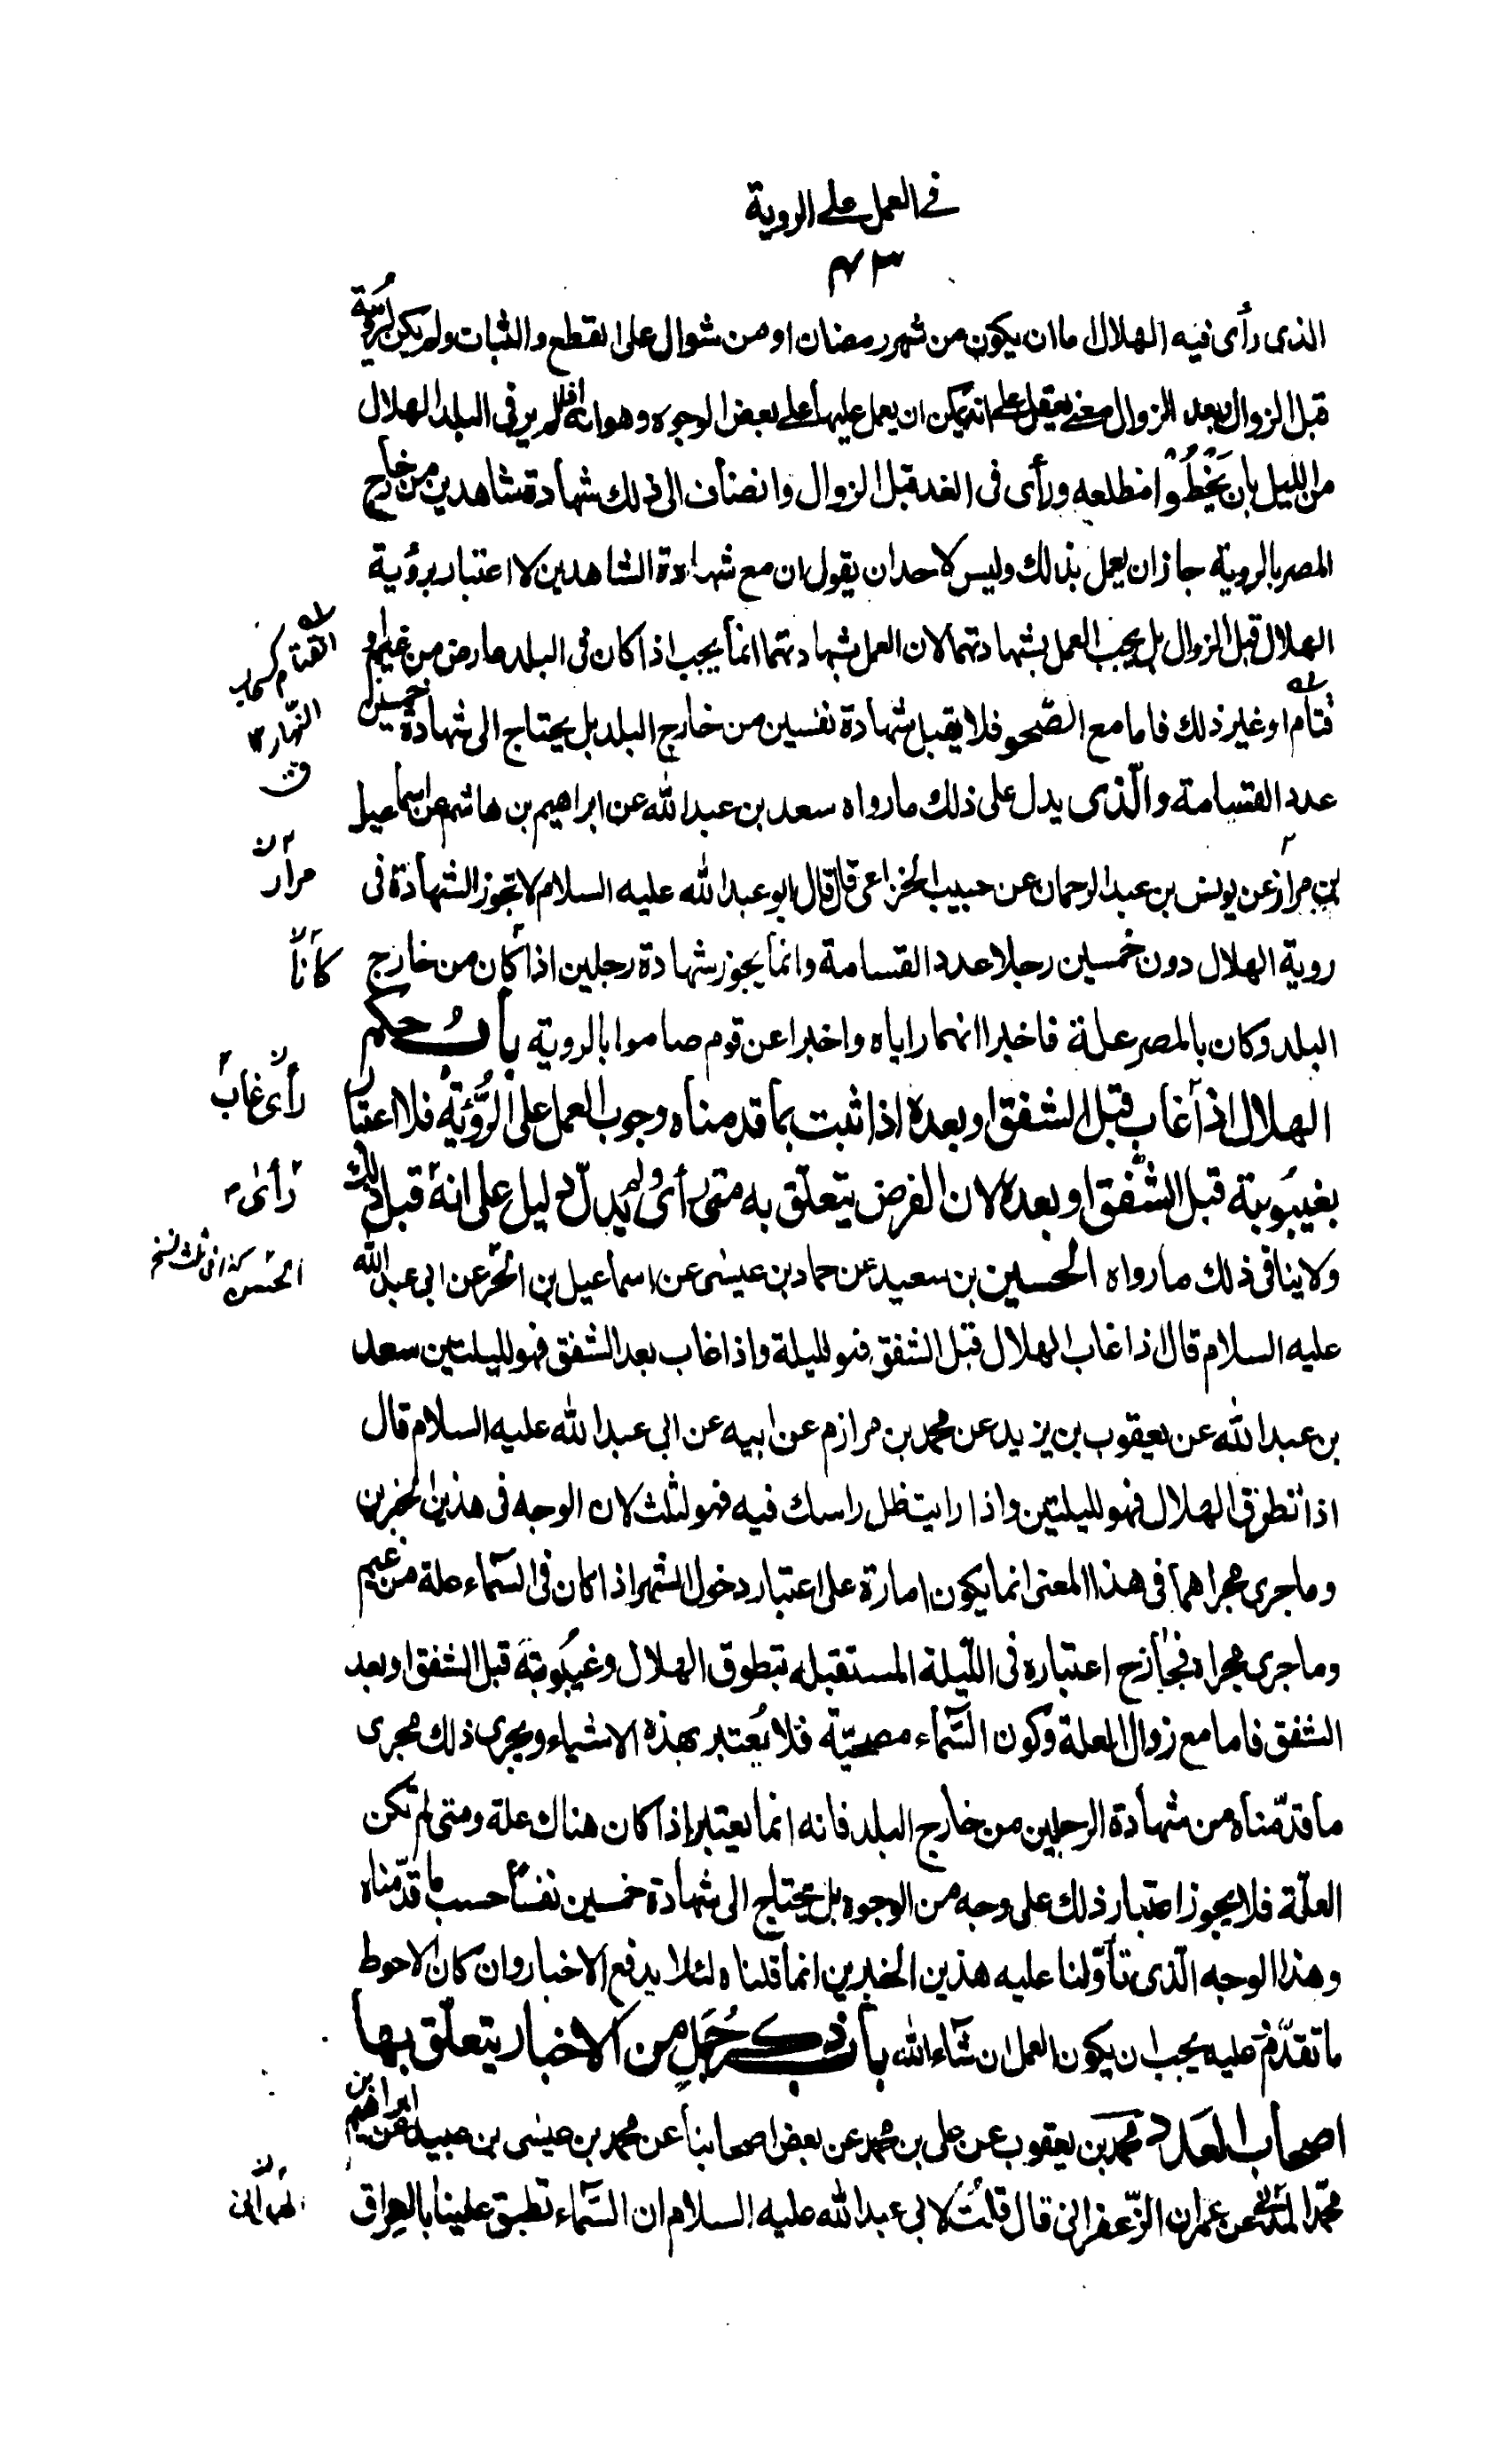 في العمل على الروية
٤٣
الذى رأى فيه الهلال ما ان يكون من شهر رمضان او من شوال على القطع والثبات ولم يكن لرؤية
قبل الزوال وبعد الزوال معنى يعقل على انه يمكن ان يعمل عليها على بعض الوجوه وهو انه اذا لم ير فى البلد الهلال
من الليل بان يخطؤا مطلعه ورأى فى الغد قبل الزوال وانضاف الى ذلك شهادة شاهدين من خارج
المصر بالروية جاز ان يعمل بذلك وليس لاحد ان يقول ان مع شهادة الشاهدين لا اعتبار برؤية
الهلال قبل الزوال بل يجب العمل بشهادتهما لان العمل بشهادتهما انما يجب اذا كان فى البلد عارض من غيم او
قتام او غير ذلك فاما مع الصحو فلا يقبل شهادة نفسين من خارج البلد بل يحتاج الى شهادة خمسين
عدد القسامة والّذى يدل على ذلك ما رواه سعد بن عبد الله عن ابراهيم بن هاشم عن اسماعيل
بن مرار عن يونس بن عبد الرحمان عن حبيب الخزاعى قال قال ابو عبد الله عليه السلام لا تجوز الشهادة فى
روية الهلال دون خمسين رجلا عدد القسامة وانما يجوز شهادة رجلين اذا كان من خارج
البلد وكان بالمصر علة فاخبرا انهما راياه واخبرا عن قوم صاموا بالروية باب حكم
الهلال اذا غاب قبل الشفق او بعده اذا ثبت بما قدمناه وجوب العمل على الرُّؤية فلا اعتبار
بغيبوبته قبل الشفق او بعده لان الفرض يتعلّق به متى رأى ولم يدلّ دليل على انه قبل ذلك
ولا ينافى ذلك ما رواه الحسين بن سعيد عن حماد بن عيسى عن اسماعيل بن الحر عن ابى عبد الله
عليه السلام قال اذا غاب الهلال قبل الشفق فهو لليلة واذا غاب بعد الشفق فهو لليلتين سعد
بن عبد الله عن يعقوب بن يزيد عن محمد بن مرازم عن ابيه عن ابى عبد الله عليه السلام قال
اذا تطوق الهلال فهو لليلتين واذا رايت ظل راسك فيه فهو لثلث لان الوجه فى هذين الخبرين
وما جرى مجراهما فى هذا المعنى انما يكون امارة على اعتبار دخول الشهر اذا كان فى السّماء علة من غيم
وما جرى مجراه فجاز ح اعتباره فى اللّيلة المستقبله بتطوق الهلال وغيبوبته قبل الشفق او بعد
الشفق فاما مع زوال العلة وكون السّماء مصحيّة فلا يُعتبر بهذه الاشياء ويجرى ذلك مجرى
ما قدّمناه من شهادة الرجلين من خارج البلد فانه انما يعتبر اذا كان هناك علة ومتى لم تكن
العلّة فلا يجوز اعتبار ذلك على وجه من الوجوه بل يحتاج الى شهادة خمسين نفسًا حسب ما قدّمناه
وهذا الوجه الّذى تأوّلنا عليه هذين الخبرين انما قلناه لئلا يدفع الاخبار وان كان الاحوط
ما تقدّم عليه يجب ان يكون العمل ان شاء الله باب ذكر جُمَل من الاخبار يتعلّق بها
اصحاب العدد محمد بن يعقوب عن على بن محمد عن بعض اصحابنا عن محمد بن عيسى بن عبيد عن ابراهيم بن
محمّد المدنى عن عمران الزّعفرانى قال قلتُ لابى عبد الله عليه السلام ان السّماء تطبق علينا بالعراق
القتام كسحاب
الغبار
ق
مرار
كانا
رأى غاب
رأى
الحسن كذا فى ثلث نسخ